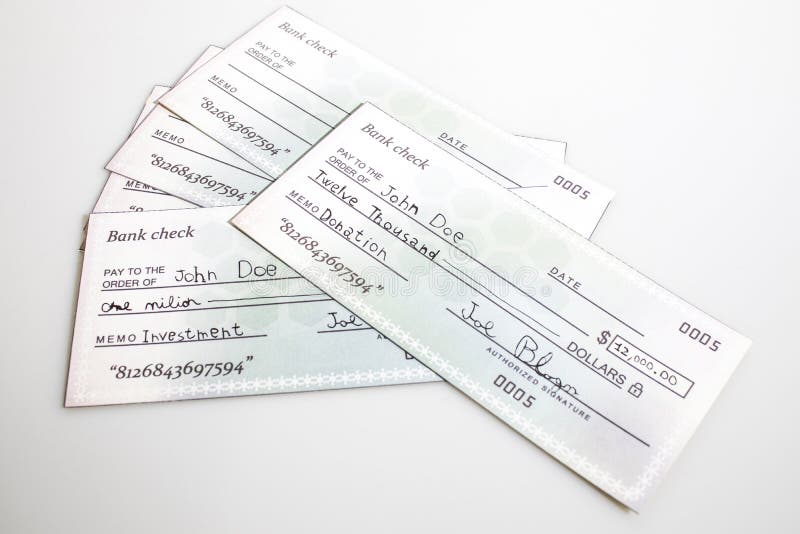 Bank check
PAY TO THE
ORDER OF
MEMO
DATE
0005
"8126843697594"
MEMO
"8126843697594"
Bank check
PAY TO THE
ORDER OF John Doe
one milion
MEMO Investment
"8126843697594"
Bank check
PAY TO THE
ORDER OF John Doe
DATE
0005
Twelve Thousand
$ 12,000.00
DOLLARS
MEMO Donation
AUTHORIZED SIGNATURE
"8126843697594"
0005
dreamstime